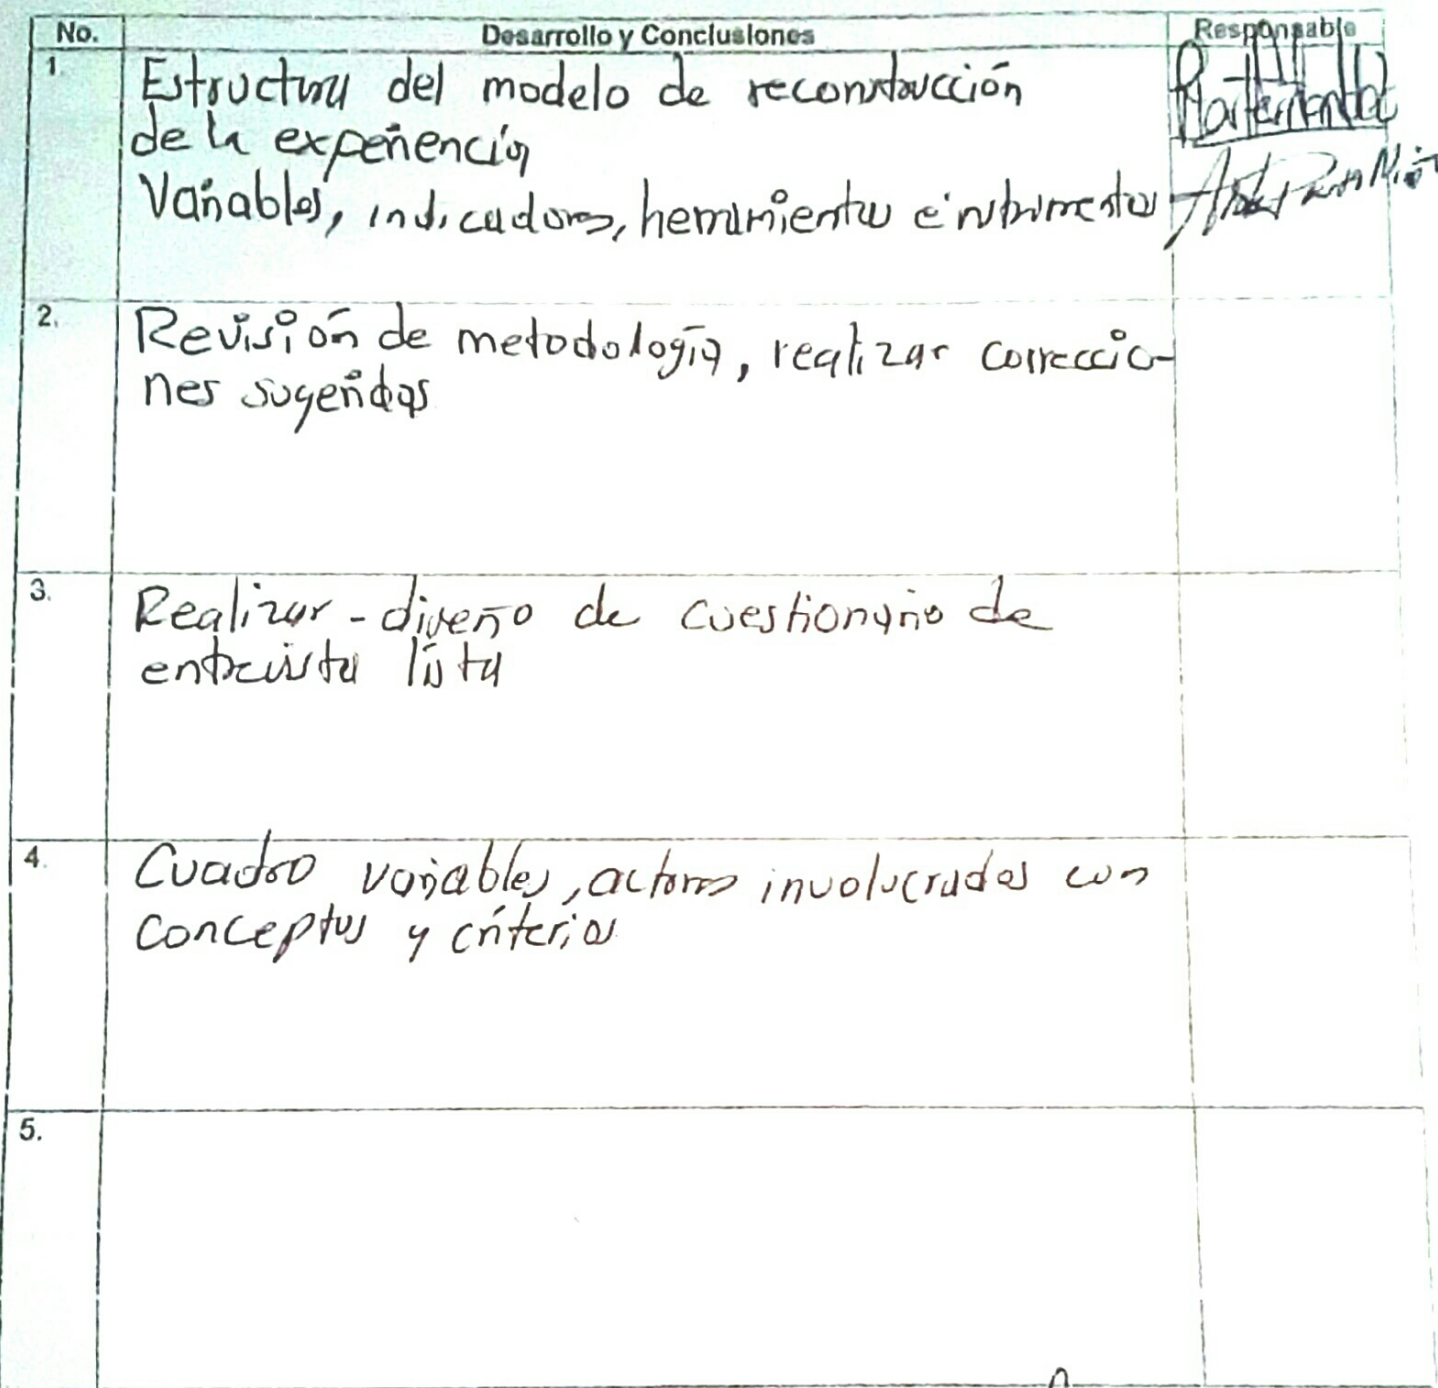 No. Desarrollo y Conclusiones Responsable
1. Estructura del modelo de reconstrucción
de la experiencia
Variables, indicadores, herramientas e instrumentos
2. Revisión de metodología, realizar correccio-
nes sugeridas
3. Realizar - diseño de cuestionario de
entrevista lista
4. Cuadro variables, actores involucrados con
conceptos y criterios
5.